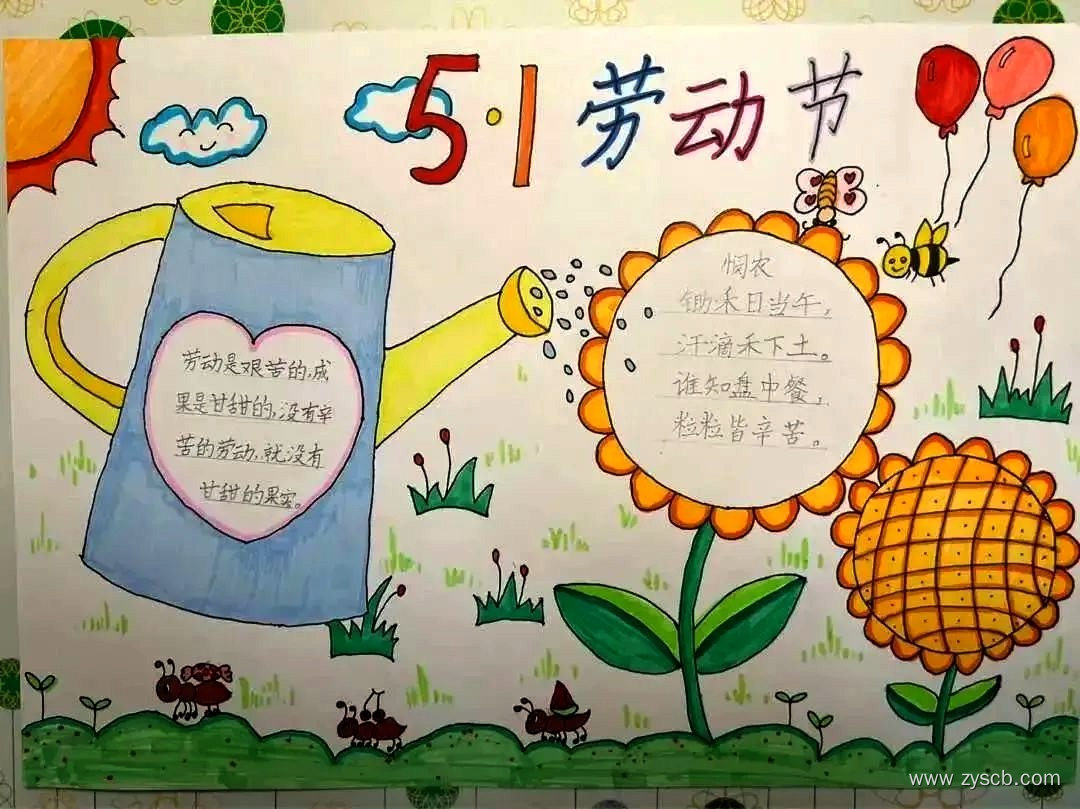 5·1 劳动节
悯农
锄禾日当午，
汗滴禾下土。
谁知盘中餐，
粒粒皆辛苦。
劳动是艰苦的，成
果是甘甜的，没有辛
苦的劳动，就没有
甘甜的果实。
www.zyscb.com